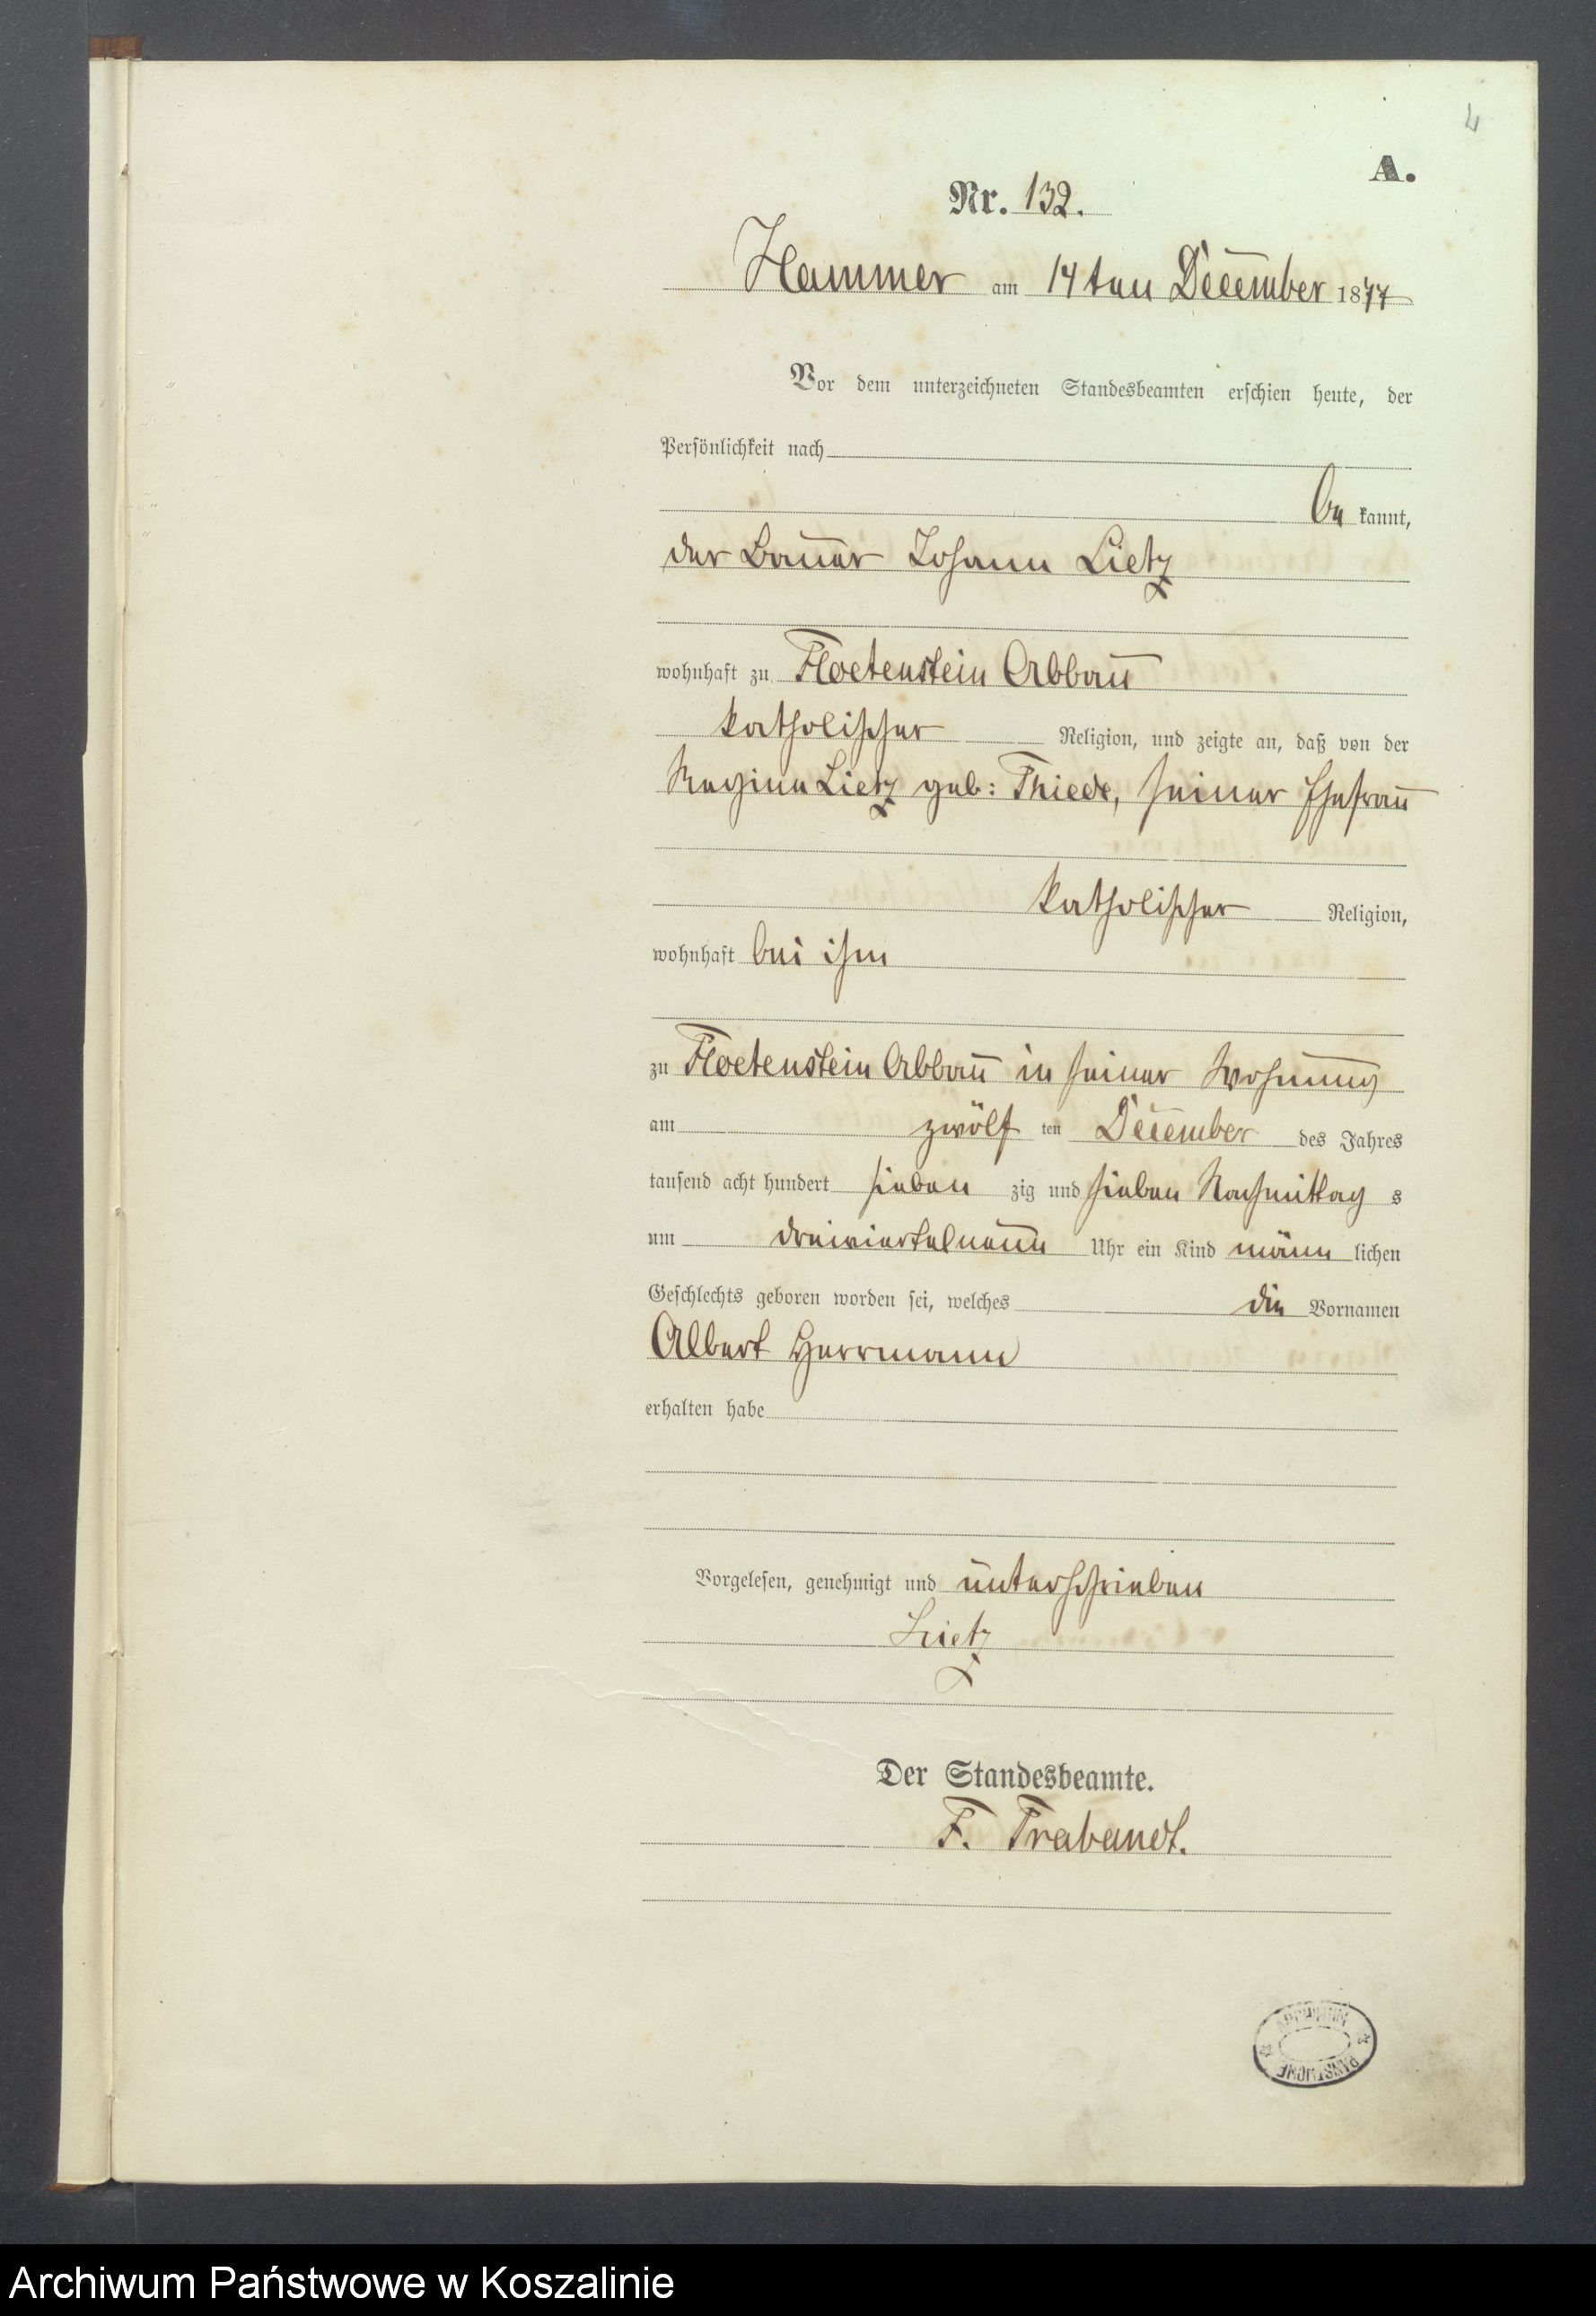 4
A.
Nr. 132.
Hammer am 14ten December 1877
Vor dem unterzeichneten Standesbeamten erschien heute, der
Persönlichkeit nach
be kannt,
der Bauer Johann Lietz
wohnhaft zu Floetenstein Abbau
katholischer Religion, und zeigte an, daß von der
Regina Lietz geb: Thiede, seiner Ehefrau
katholischer Religion,
wohnhaft bei ihm
zu Floetenstein Abbau in seiner Wohnung
am zwölf ten December des Jahres
tausend acht hundert sieben zig und sieben Nachmittag s
um dreiviertelneun Uhr ein Kind männ lichen
Geschlechts geboren worden sei, welches die Vornamen
Albert Herrmann
erhalten habe
Vorgelesen, genehmigt und unterschrieben
Lietz
Der Standesbeamte.
F. Trabandt.
ARCHIWUM PAŃSTWOWE
Archiwum Państwowe w Koszalinie